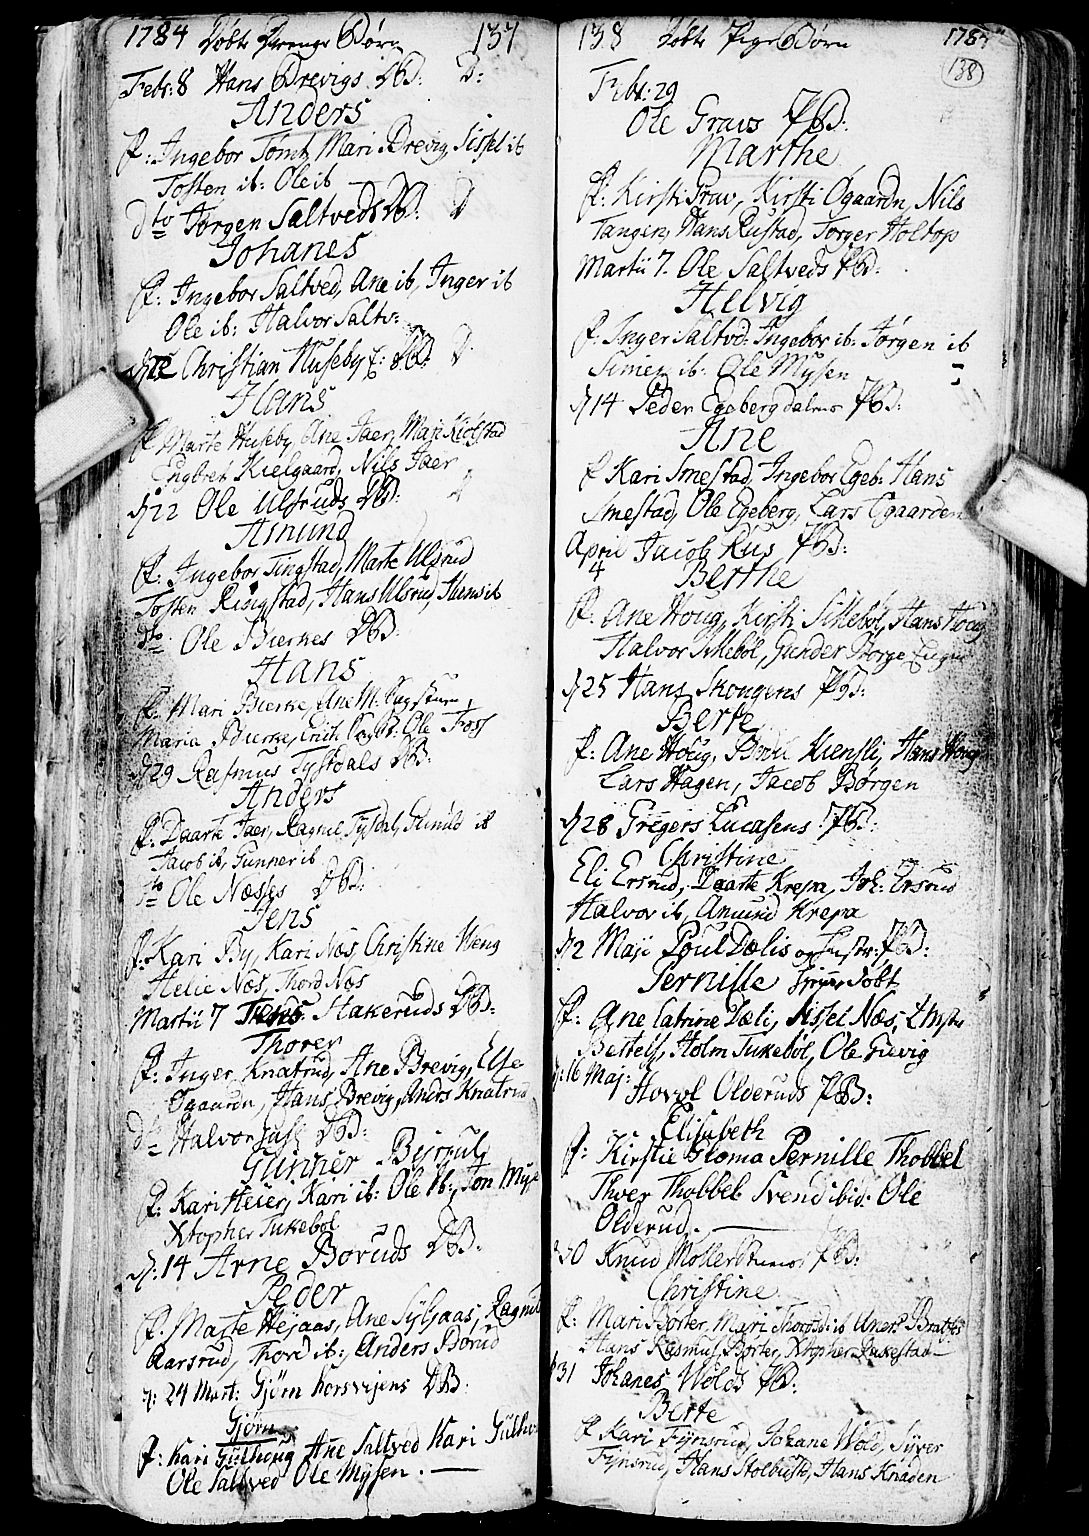 1784 Døbte Drenge Børn 137
Febr: 8 Hans Brevigs DB: D:
Anders
f: Ingebor Tomt, Mari Brevig, Sissel ib
Tosten ib: Ole ib
dto Jørgen Saltveds DB: D
Johanes
f: Ingebor Saltved, Ane ib, Inger ib
Ole ib: Halvor Saltv:
Christian Huseby E: DB: D
Hans
f Marte Huseby, Ane Jaer, Maji Kiølstad
Engbret Kielgaard, Nils Jaer
d 22 Ole Ulsruds DB:
Amund
f: Ingebor Tingstad, Marte Ulsrud
Tosten Ringstad, Hans Ulsrud, Hans ib
dto Ole Bierkes DB:
Hans
f: Mari Bierke, Ane M:
Maria Bierke, Erich Ole Foss
d 29 Rasmus Tysdals DB:
Anders
f: Daarte Jaer, Ragnil Tysdal, Gunild ib
Jacob ib, Gunner ib
dto Ole Næsses DB:
Jens
f: Kari By, Kari Næs, Christine Weng
Helie Næs, Thord Næs
Martii 7 Hakeruds DB:
Thorer
f: Inger Knatrud, Ane Brevig, Else
Øgaardn, Hans Brevig, Anders Knatrud
dto Halvor DB:
Gunner
f: Kari Heier, Kari ib: Ole ib:, Jon
Xtopher Tukebøl
d: 14 Arne Boruds DB:
Peder
f: Marte Hejaas, Ane Syljaas, Ragnil
Aarsrud, Thord ib:, Anders Borud
d: 24 Mart: Gjørn Korsvejens DB:
Gjørn
f: Kari Gulhoug Ane Saltved Kari
Ole Saltved Ole Mysen. —
138 Døbte Pige Børn 1784
138
Febr: 29
Ole Gravs PB:
Marthe
f: Kirsti Grav, Kirsti Øgaardn, Nils
Tangen, Hans Rustad, Torger Holtop
Martii 7. Ole Saltveds PB:
Helvig
f: Inger Saltvd: Ingebor ib: Jørgen ib
Simen ib: Ole Mysen
d 14 Peder Egebergdalens PB:
Ane
f Kari Smestad, Ingebor Egeb: Hans
Smestad, Ole Egeberg, Lars Øgaarden
April Jacob Rus PB:
4 Berthe
f: Ane Houg, Kirsti Sikkebøl, Hans Houg
Halvor Sikkebøl, Gunder Borge
d 25 Hans Skougens PB:
Berte
f: Ane Houg, Kiensli, Hans Houg
Lars Hagen, Jacob Børgen
d 28 Gregers Lucasens PB:
Christine
Eli Ersrud, Daarte Krepa, Joh: Ersrud
Halvor ib, Amund Krepa
d 2 Maji Poul Dælis og Hustr: PB:
Pernille hjemdøbt
f: Ane Catrine Dæli, Sissel Næs,
Bertels, Holm Tukebøl, Ole
d: 16 Maj: Hovel Olderuds PB:
Elisabeth
f: Kirstie Gloma Pernille Thobbel
Thoer Thobbel Svend ibid: Ole
Olderud. —
30 Knud Møllerstuens PB:
Christine
f: Mari Børter, Mari ib Aners
Hans Rasmus Børter, Xtopher
31 Johanes Wolds PB:
Berte
f Kari Fynsrud, Johane Wold, Syver
Fynsrud, Hans Holbust, Hans Knaden